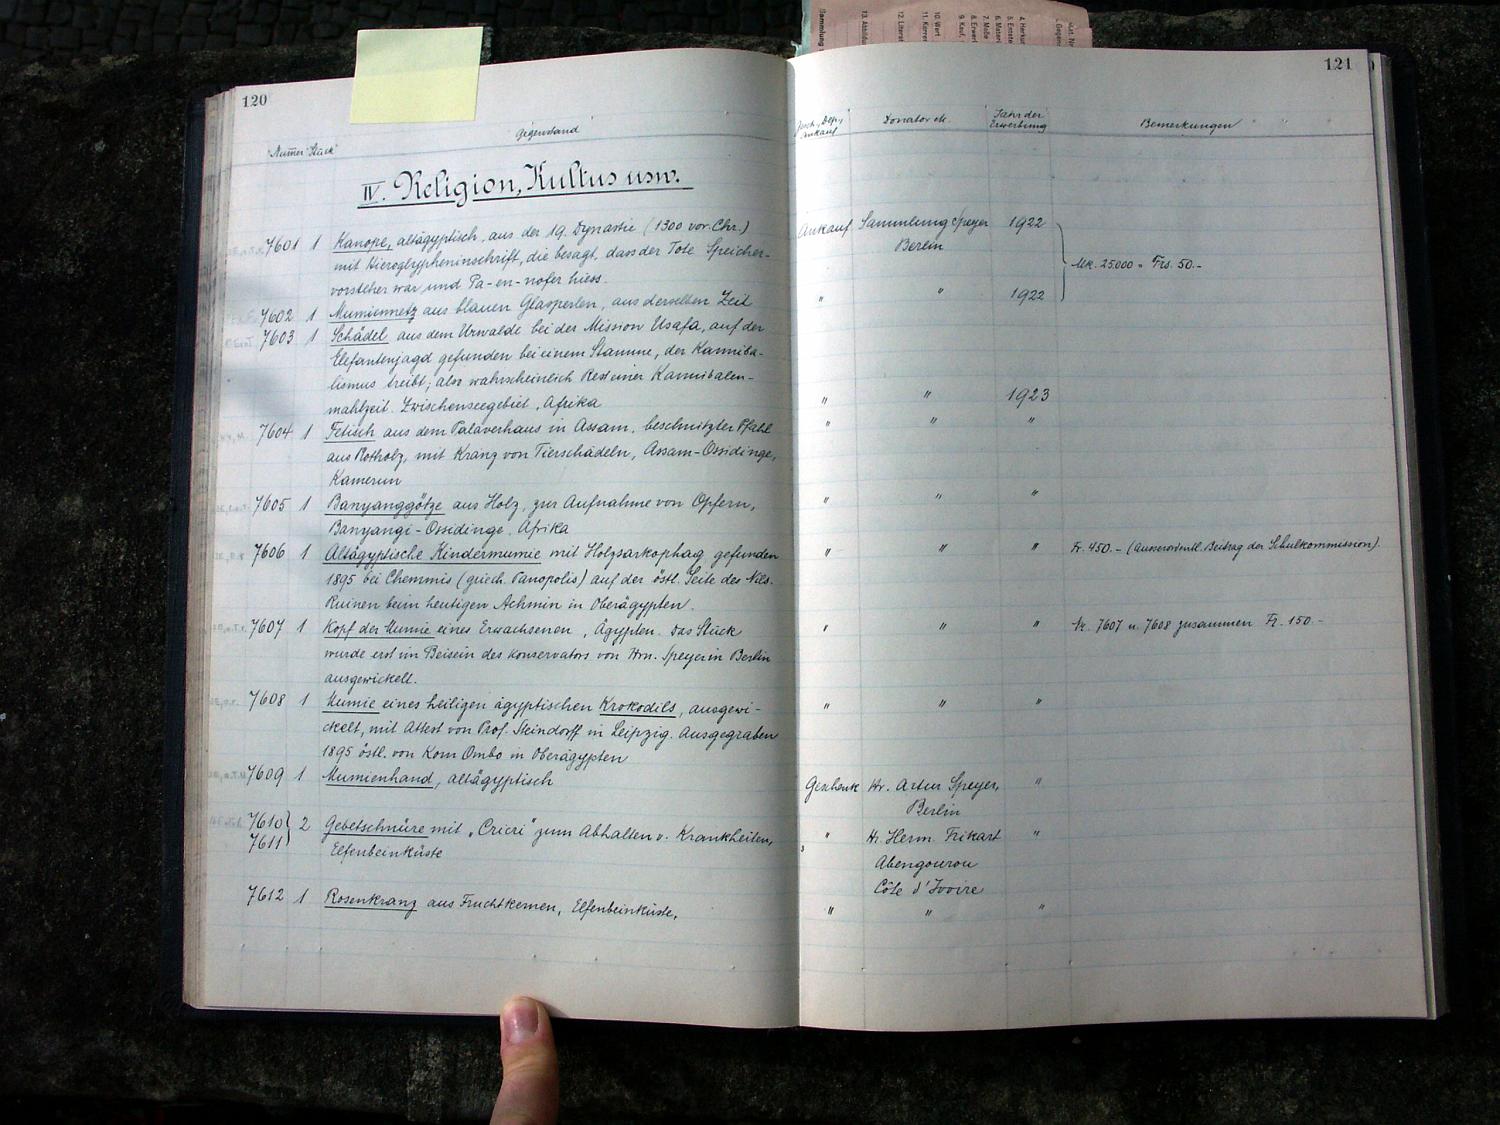 120
Numer Stück
Gegenstand
IV. Religion, Kultus usw.
7601 1 Kanope, altägyptisch, aus der 19. Dynastie (1300 vor. Chr.)
mit Hieroglypheninschrift, die besagt, dass der Tote Speicher-
vorsteher war und Pa-en-nofer hiess.
7602 1 Mumiennetz aus blauen Glasperlen, aus derselben Zeit
7603 1 Schädel aus dem Urwalde bei der Mission Usafa, auf der
Elefantenjagd gefunden bei einem Stamme, der Kanniba-
lismus treibt; also wahrscheinlich Rest einer Kannibalen-
mahlzeit. Zwischenseegebiet, Afrika
7604 1 Fetisch aus dem Palaverhaus in Assam, beschnitzter Pfahl
aus Rotholz, mit Kranz von Tierschädeln, Assam-Ossidinge,
Kamerun
7605 1 Banyanggötze aus Holz, zur Aufnahme von Opfern,
Banyangi-Ossidinge. Afrika
7606 1 Altägyptische Kindermumie mit Holzsarkophag gefunden
1895 bei Chemmis (griech. Panopolis) auf der östl. Seite des Nils.
Ruinen beim heutigen Achmin in Oberägypten.
7607 1 Kopf der Mumie eines Erwachsenen, Ägypten. Das Stück
wurde erst im Beisein des Konservators von Hrn. Speyer in Berlin
ausgewickelt.
7608 1 Mumie eines heiligen ägyptischen Krokodils, ausgewi-
ckelt, mit Attest von Prof. Steindorff in Leipzig. Ausgegraben
1895 östl. von Kom Ombo in Oberägypten
7609 1 Mumienhand, altägyptisch
7610 2 Gebetschnüre mit „Cricri" zum Abhalten v. Krankheiten,
7611 Elfenbeinküste
7612 1 Rosenkranz aus Fruchtkernen, Elfenbeinküste,
121
Gesch., Dep., Ankauf
Donator etc.
Jahr der
Erwerbung
Bemerkungen
Ankauf Sammlung Speyer 1922
Berlin
Mk. 25.000 = Frs. 50.-
" " 1922
" " 1923
" " "
" " "
" " " Fr. 450.- (Ausserordentl. Beitrag der Schulkommission).
" " " Nr. 7607 u. 7608 zusammen Fr. 150.-
" " "
Geschenk Hr. Artur Speyer, "
Berlin
" Hr. Herm. Frikart "
Abengourou
Côte d'Ivoire
" " "